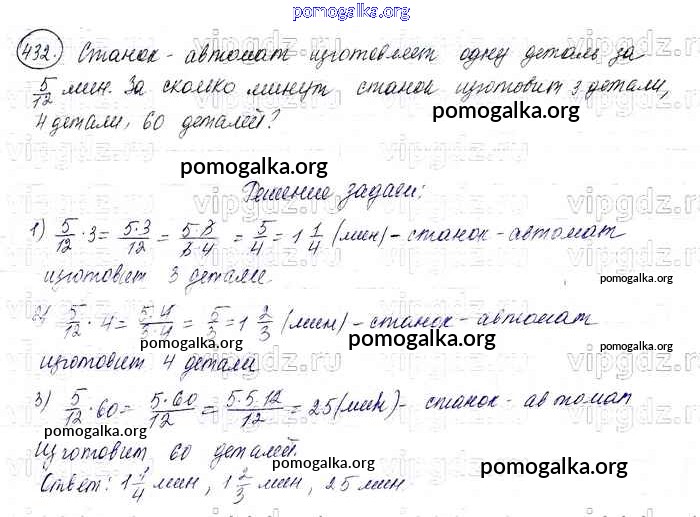 pomogalka.org
432. Станок-автомат изготовляет одну деталь за
5/12 мин. За сколько минут станок изготовит 3 детали,
4 детали, 60 деталей?
pomogalka.org
pomogalka.org
Решение задачи:
1) 5/12 · 3 = 5·3/12 = 5·3/3·4 = 5/4 = 1 1/4 (мин) - станок-автомат
изготовит 3 детали.
pomogalka.org
2) 5/12 · 4 = 5·4/3·4 = 5/3 = 1 2/3 (мин) - станок-автомат
pomogalka.org
изготовит 4 детали
pomogalka.org
3) 5/12 · 60 = 5·60/12 = 5·5·12/12 = 25 (мин) - станок-автомат
pomogalka.org
изготовит 60 деталей.
pomogalka.org
pomogalka.org
Ответ: 1 1/4 мин, 1 2/3 мин, 25 мин.
vipgdz.ru